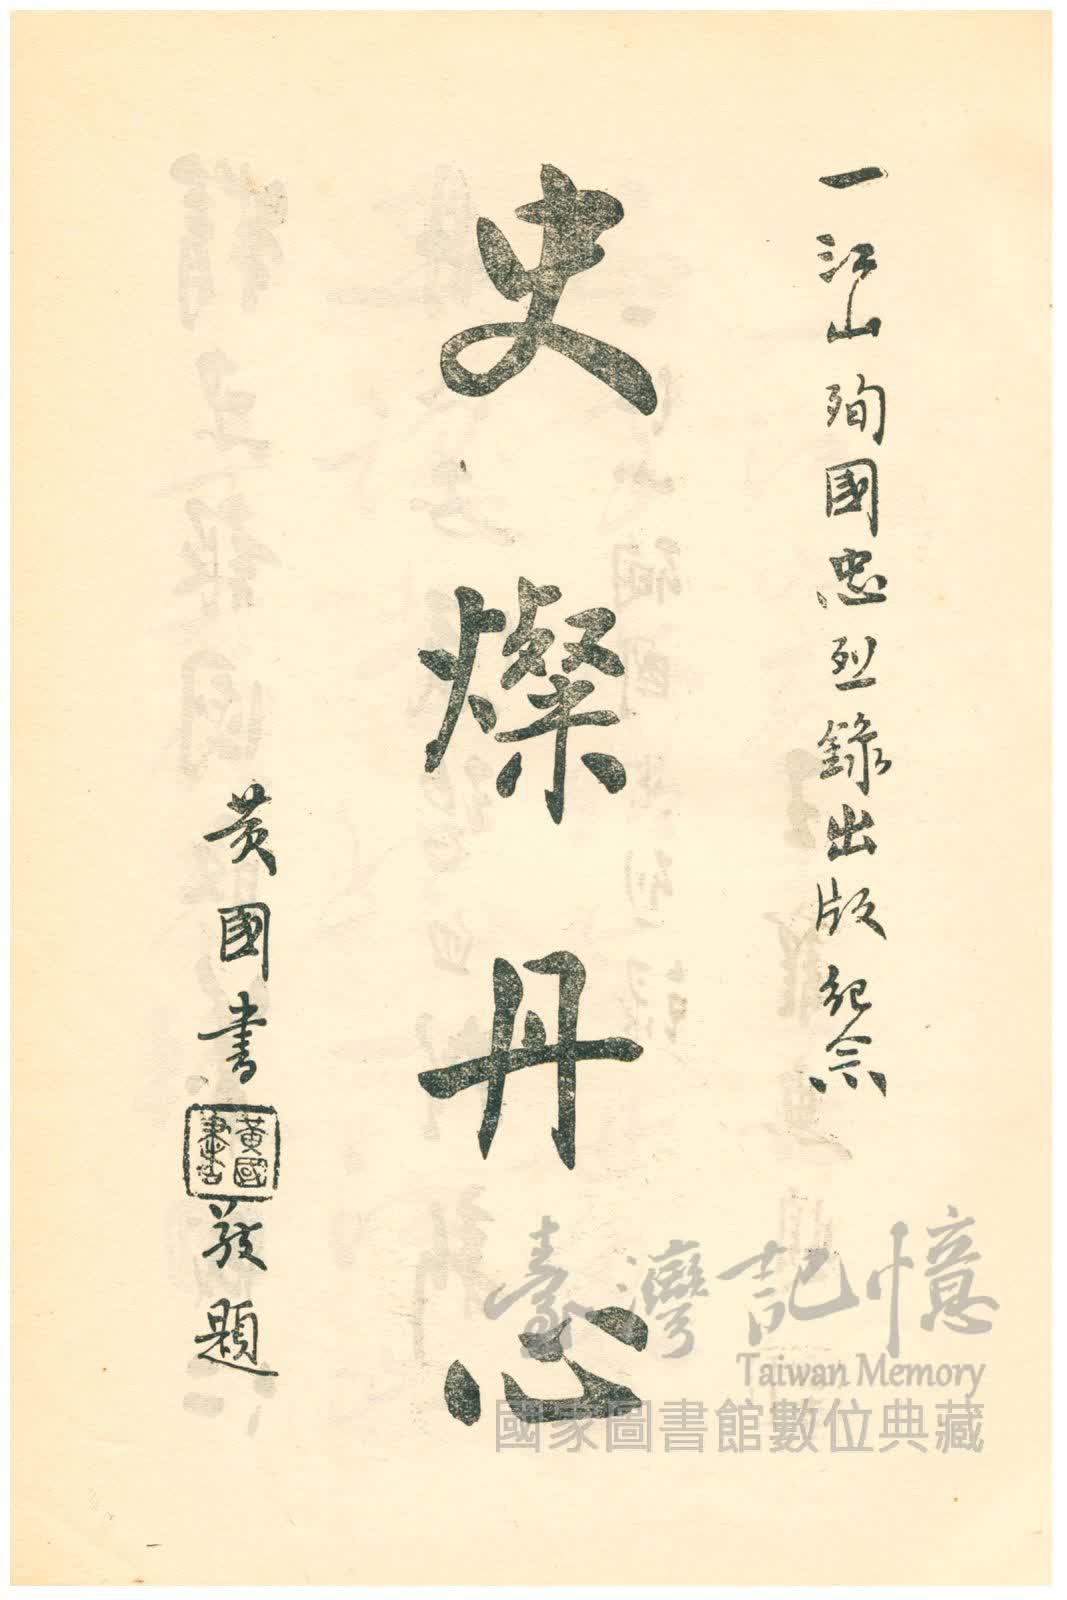 一江山殉國忠烈錄出版紀念
史燦丹心
黃國書
黃國書
敬題
臺灣記憶
Taiwan Memory
國家圖書館數位典藏